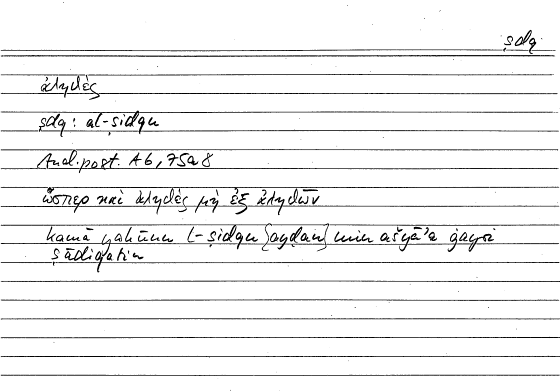 ṣdq
ἀληθές
ṣdq : al-ṣidqu
Anal. post. A6, 75a8
ὥσπερ καὶ ἀληθὲς μὴ ἐξ ἀληθῶν
kamā yakūnu l-ṣidqu {ayḍan} min ašyāʾa ġayri
ṣādiqatin